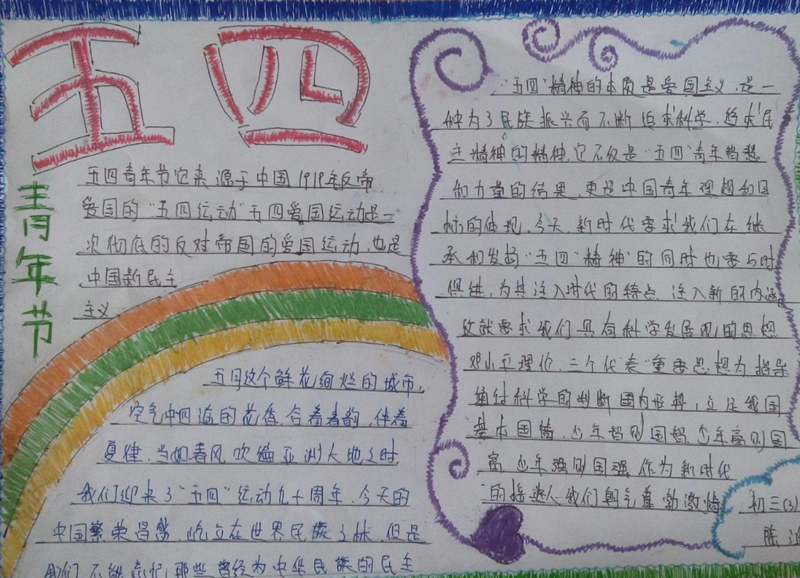 五四
青年节
五四青年节它来源于中国1919年反帝
爱国的"五四运动"五四爱国运动是一
次彻底的反对帝国的爱国运动,也是
中国新民主
主义
五月这个鲜花绚烂的城市,
空气中四溢的花香,合着春韵,伴着
夏律,当如春风吹遍亚洲大地之时
我们迎来了"五四"运动九十周年,今天的
中国繁荣昌盛,屹立在世界民族之林,但是
我们不能忘记那些曾经为中华民族的民主
"五四"精神的本质是爱国主义,是一
种为了民族振兴而不断追求科学,追求民
主精神的精神,它不仅是"五四"青年智慧
和力量的结果,更是中国青年理想和目
标的体现,今天,新时代要求我们在继
承和发扬"五四"精神"的同时也要与时
俱进,为其注入时代的特点,注入新的内涵
这就要求我们具有科学发展观的思想
邓小平理论,三个代表"重要思想为指导
通过科学的判断国内形势,立足我国
基本国情,少年智则国智,少年富则国
富,少年强则国强,作为新时代
的接班人我们朝气蓬勃激情
初三(3)
陈